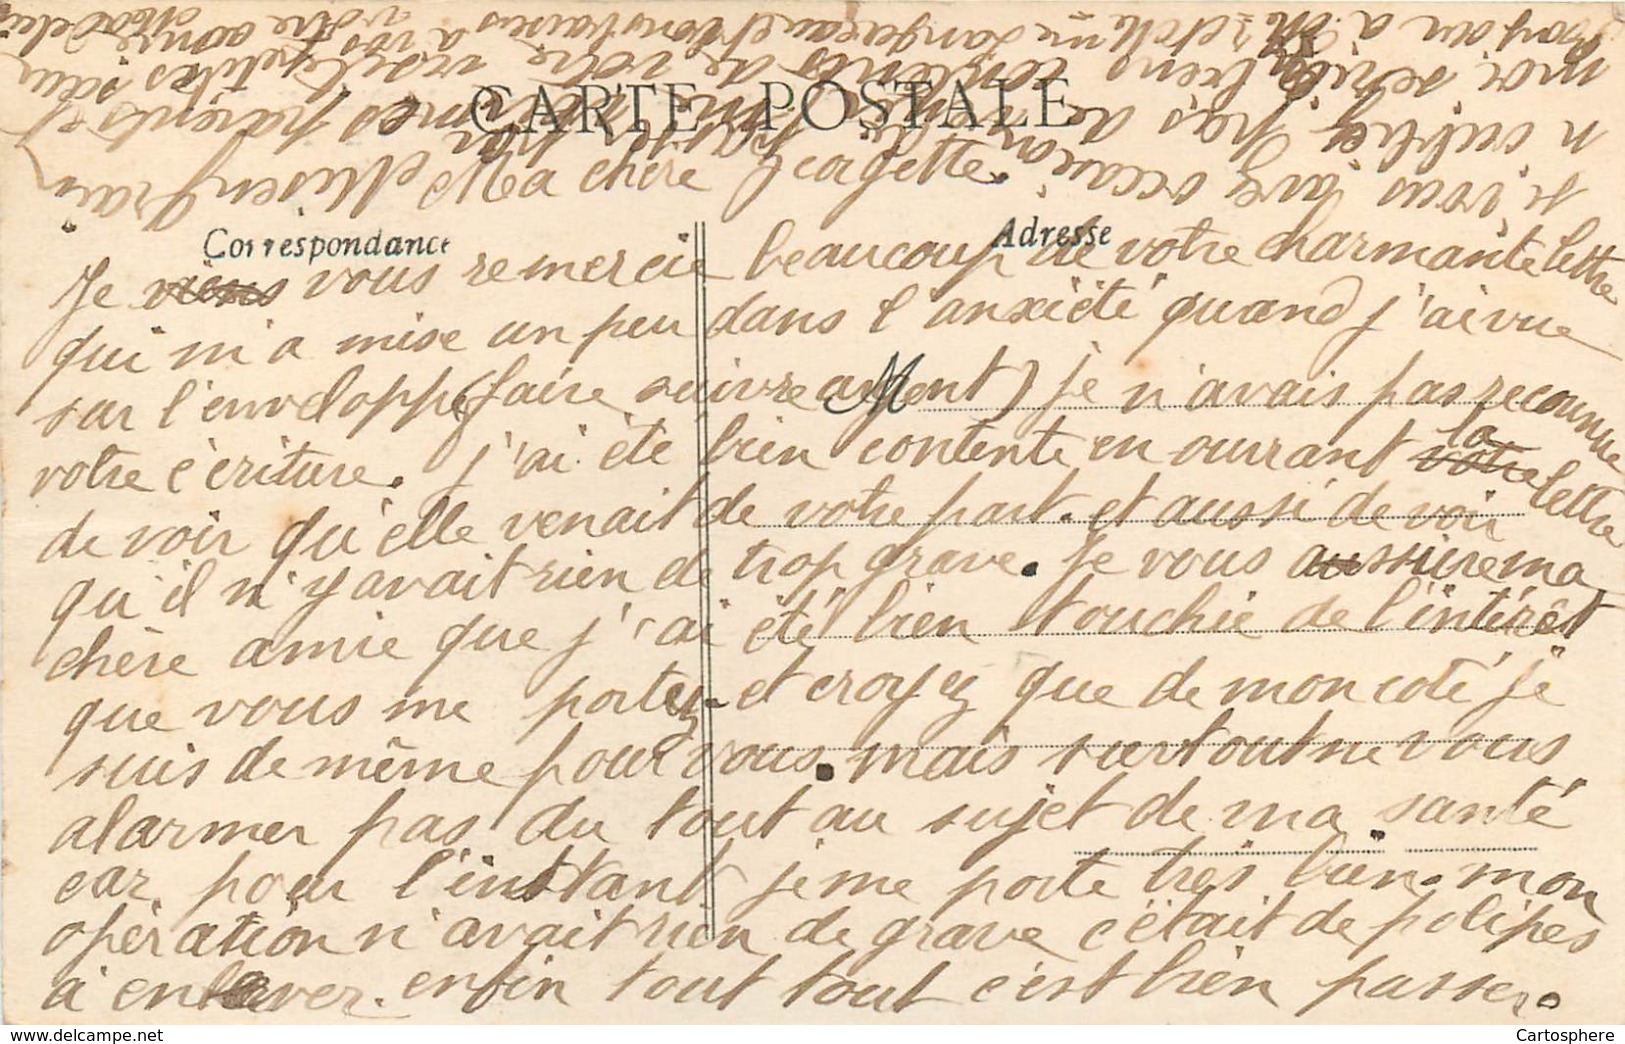 CARTE POSTALE
Correspondance
Adresse
Ma chère Georgette.
Je viens vous remercie beaucoup de votre charmante lettre
qui m'a mise un peu dans l'anxiété quand j'ai vue
sur l'enveloppe (faire suivre urgent) je n'avais pas reconnue
votre écriture. j'ai été bien contente en ouvrant votre la lettre
de voir qu'elle venait de votre part. et aussi de voir
qu'il n'y avait rien de trop grave. Je vous assure ma
chère amie que j'ai été bien touchée de l'intérêt
que vous me portez. et croyez que de mon coté je
suis de même pour vous. mais surtout ne vous
alarmer pas du tout au sujet de ma santé
car pour l'instant je me porte très bien. mon
opération n'avait rien de grave c'était de polipes
à enlever. enfin tout tout c'est bien passer.
si vous avez occasion
n'oubliez pas de
mes parents et
moi
bonjour à
vos petites sœurs
votre amie
M
Cartosphere